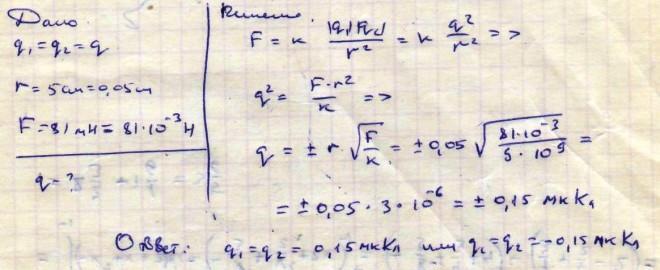 Дано
q₁=q₂=q
r=5см=0,05м
F=81мН=81·10⁻³Н
q-?
Решение.
F = k |q₁||q₂| / r² = k q²/r² =>
q² = F·r²/k =>
q = ± r √(F/k) = ±0,05 √(81·10⁻³ / 9·10⁹) =
= ±0,05·3·10⁻⁶ = ±0,15 мкКл
Ответ: q₁=q₂=0,15мкКл или q₁=q₂=-0,15мкКл